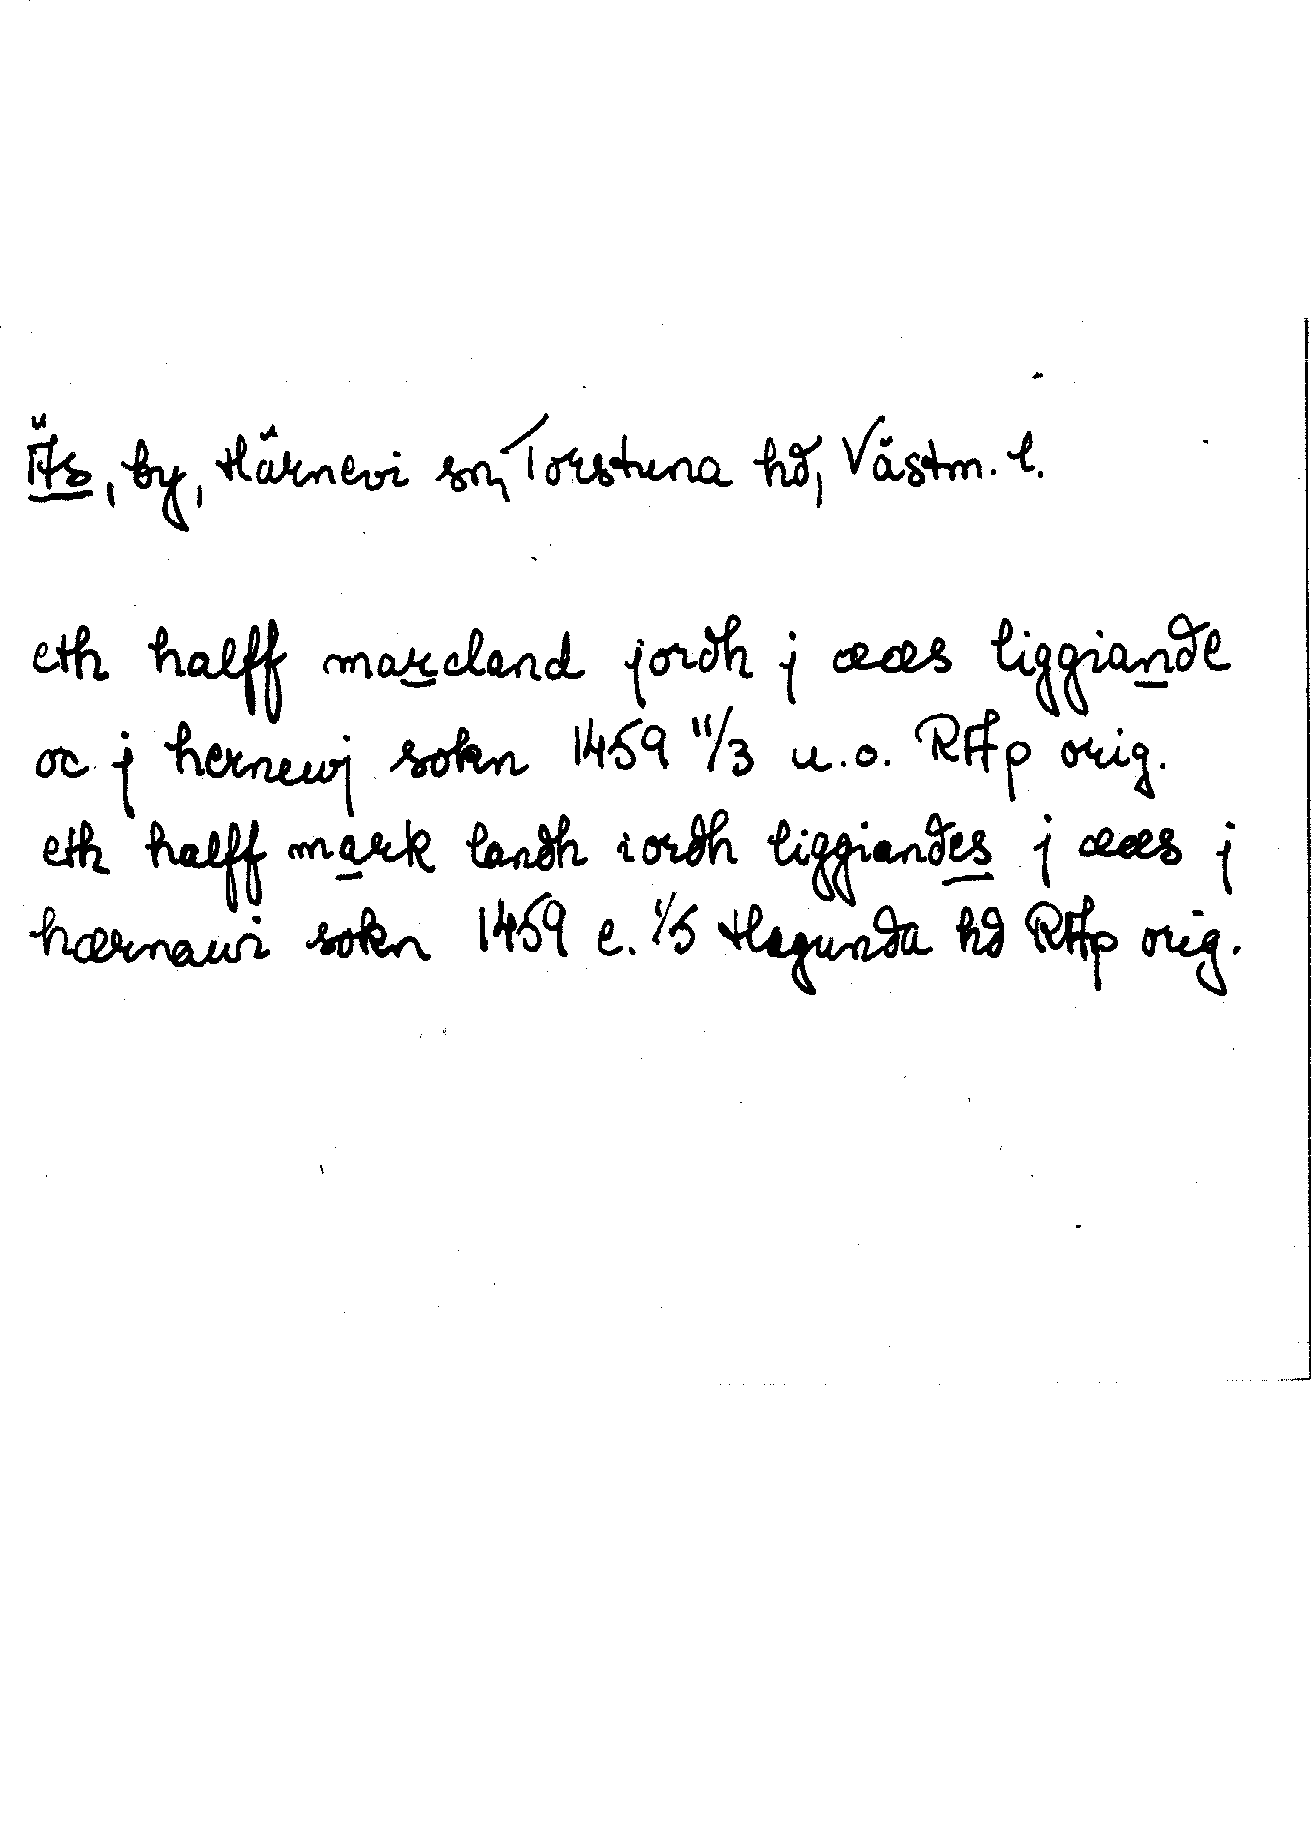 Äs, by, Härnevi sn, Torstuna hd, Västm. l.
eth halff marcland jordh j ææs liggiande
oc j hernewj sokn 1459 11/3 u.o. RAp orig.
eth halff mark landh iordh liggiandes j ææs j
hærnawi sokn 1459 e. 1/5 Hagunda hd RAp orig.